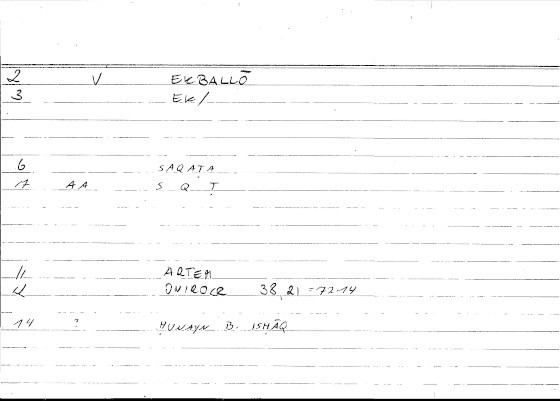 2 V EKBALLŌ
3 EK/
6 SAQAṬA
7 AA S Q Ṭ
11 ARTEM
ONIROCR 38, 21 = 72-14
14 ? ḤUNAYN B. ISḤĀQ